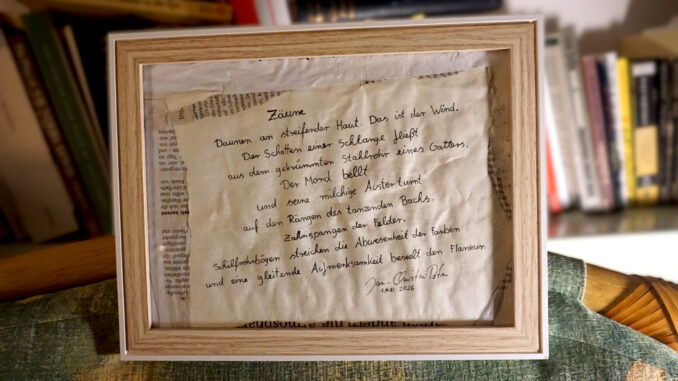 Zäune
Daunen an streifender Haut. Das ist der Wind.
Der Schatten einer Schlange fließt
aus dem gekrümmten Stahlrohr eines Gatters.
Der Mond bellt
und seine milchige Auster turnt
auf den Rängen des tanzenden Bachs.
Zahngpangen der Felder.
Schilfrohrbögen streichen die Abwesenheit der Farben
und eine gleitende Aufmerksamkeit beseelt den Flaneur.
1. Mai. 2026